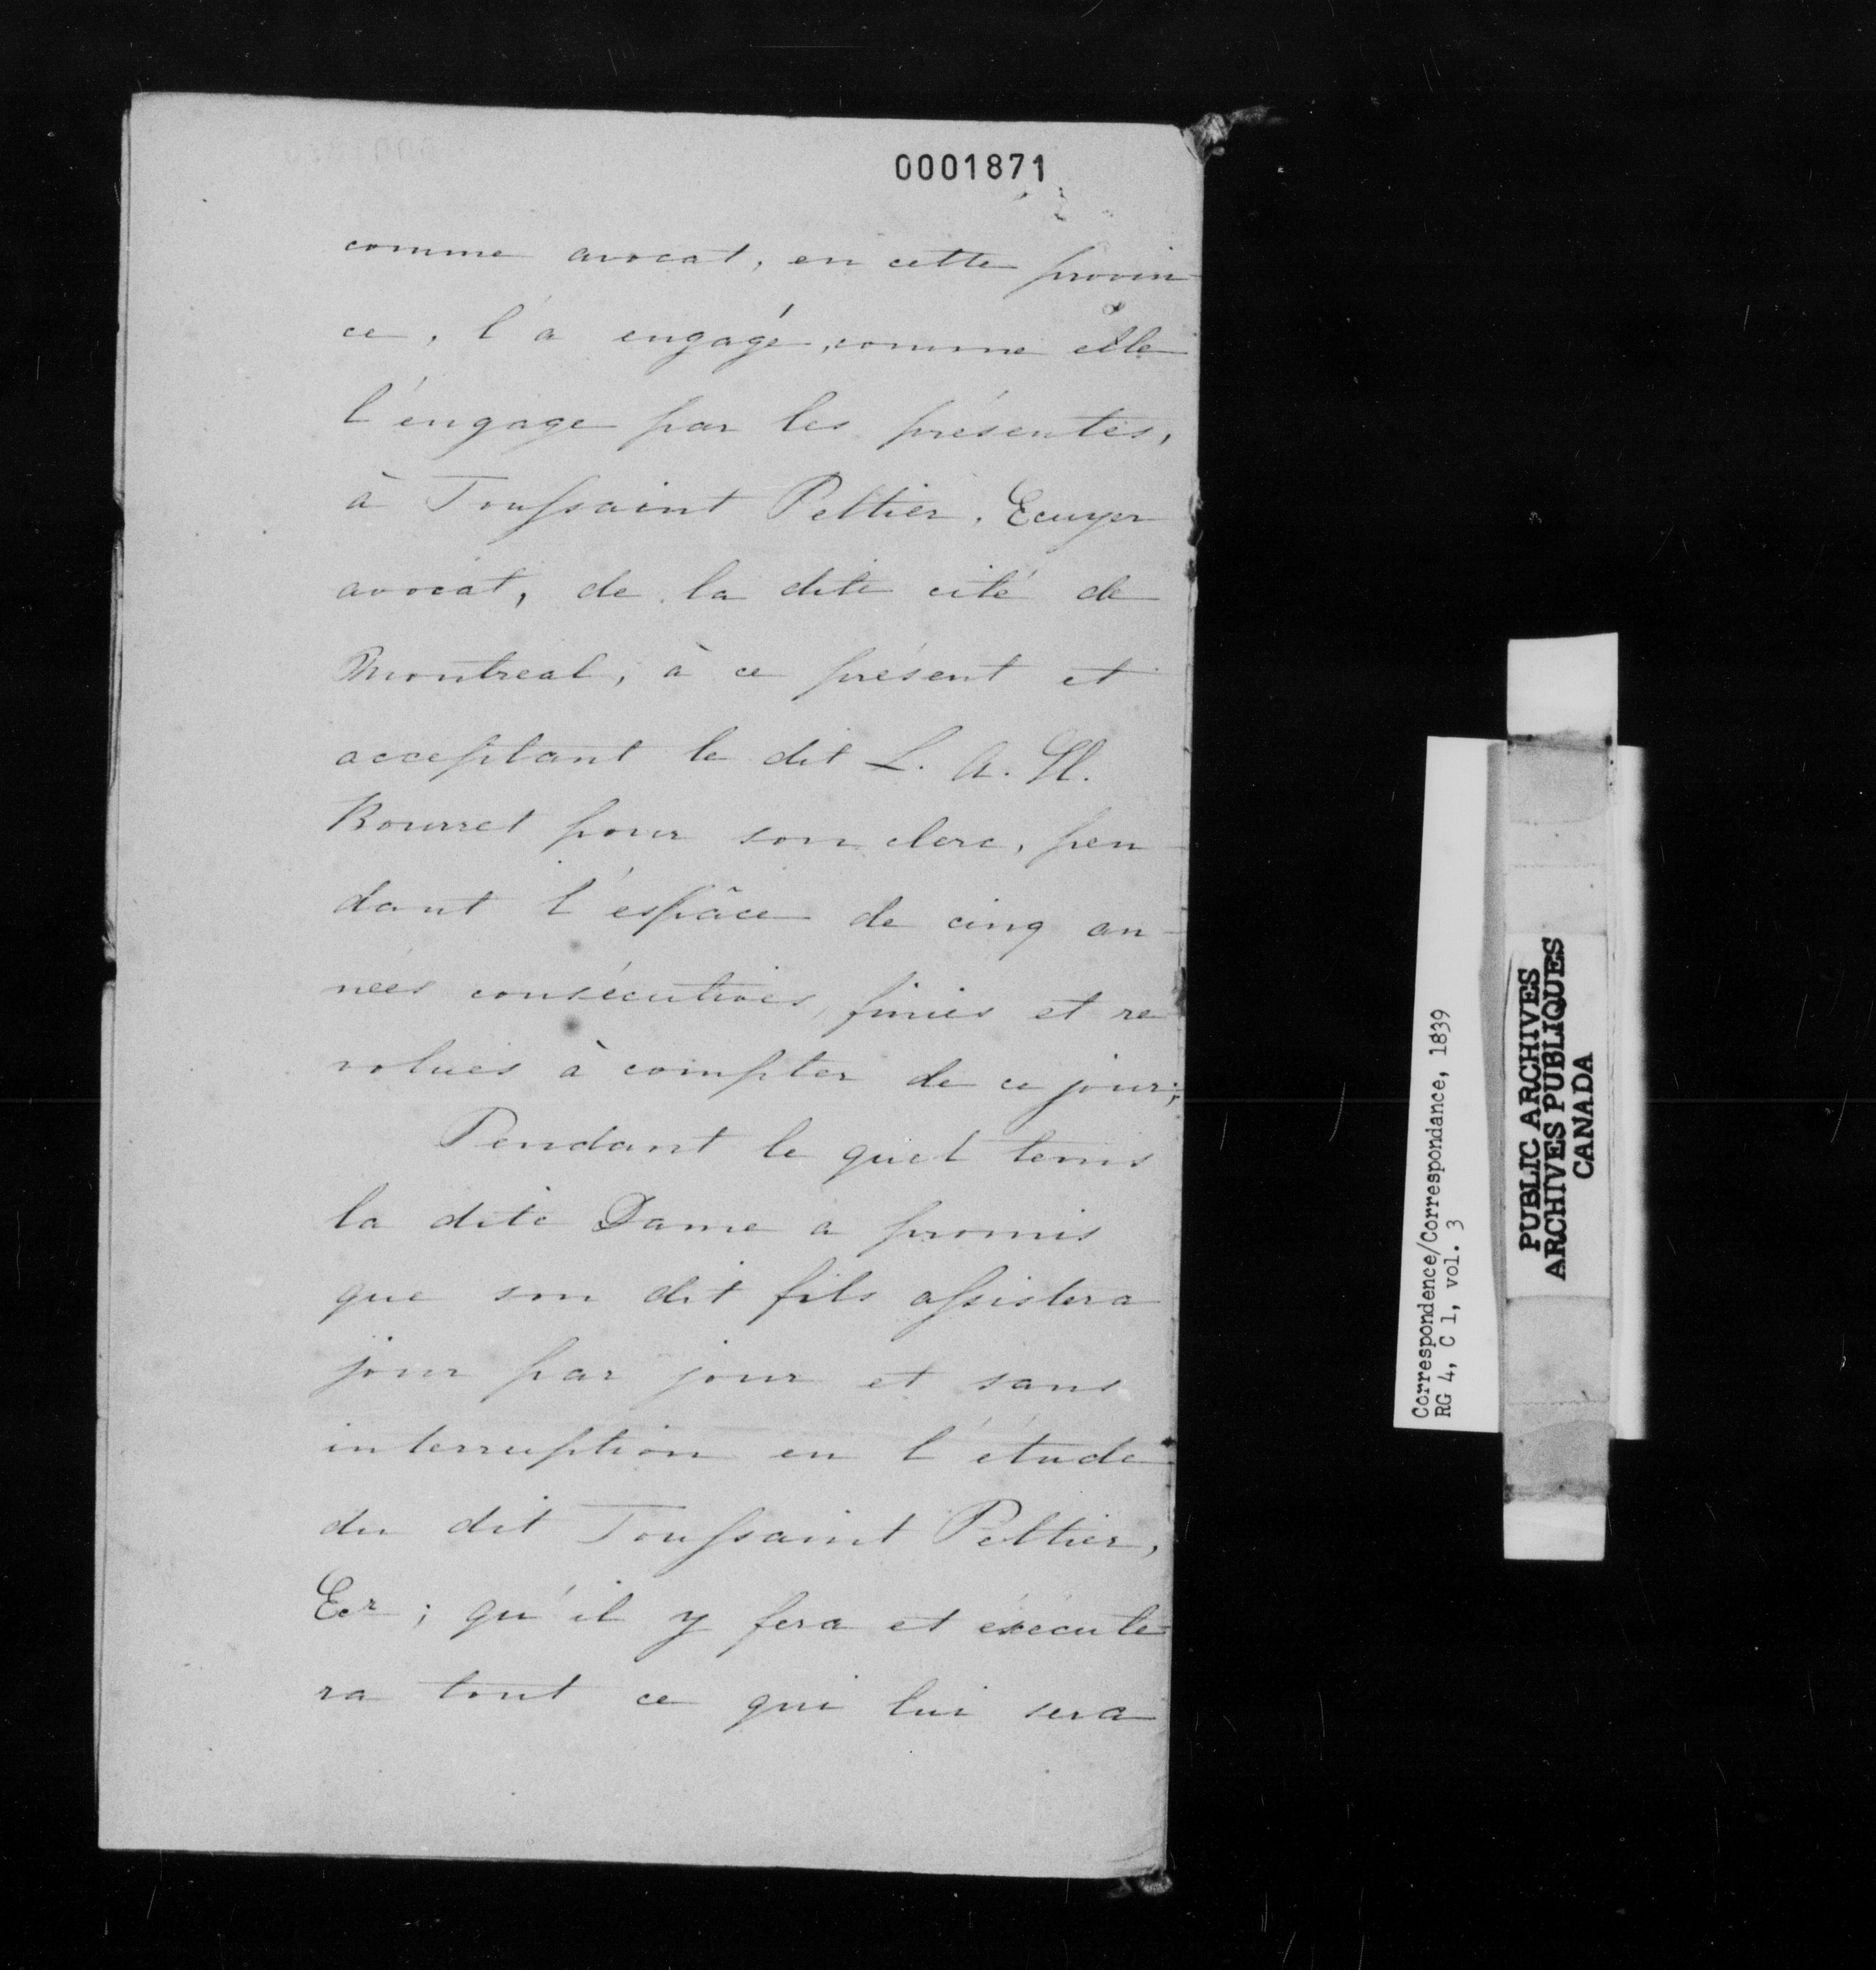 0001871
comme avocat, en cette provin
ce, l'a engagé, comme elle
l'engage par les présentes,
à Toussaint Peltier, Ecuyer
avocat, de la dite cité de
Montreal, à ce présent et
acceptant le dit L. A. H.
Bourret pour son clerc, pen
dant l'espâce de cinq an-
nées consécutives, finies et re
volues à compter de ce jour;
Pendant le quel tems
la dite Dame a promis
que son dit fils assistera
jour par jour et sans
interruption en l'étude
du dit Toussaint Peltier,
Ecr; qu'il y fera et éxécute-
ra tout ce qui lui sera
Correspondence/Correspondance, 1839
RG 4, C 1, vol. 3
PUBLIC ARCHIVES
ARCHIVES PUBLIQUES
CANADA